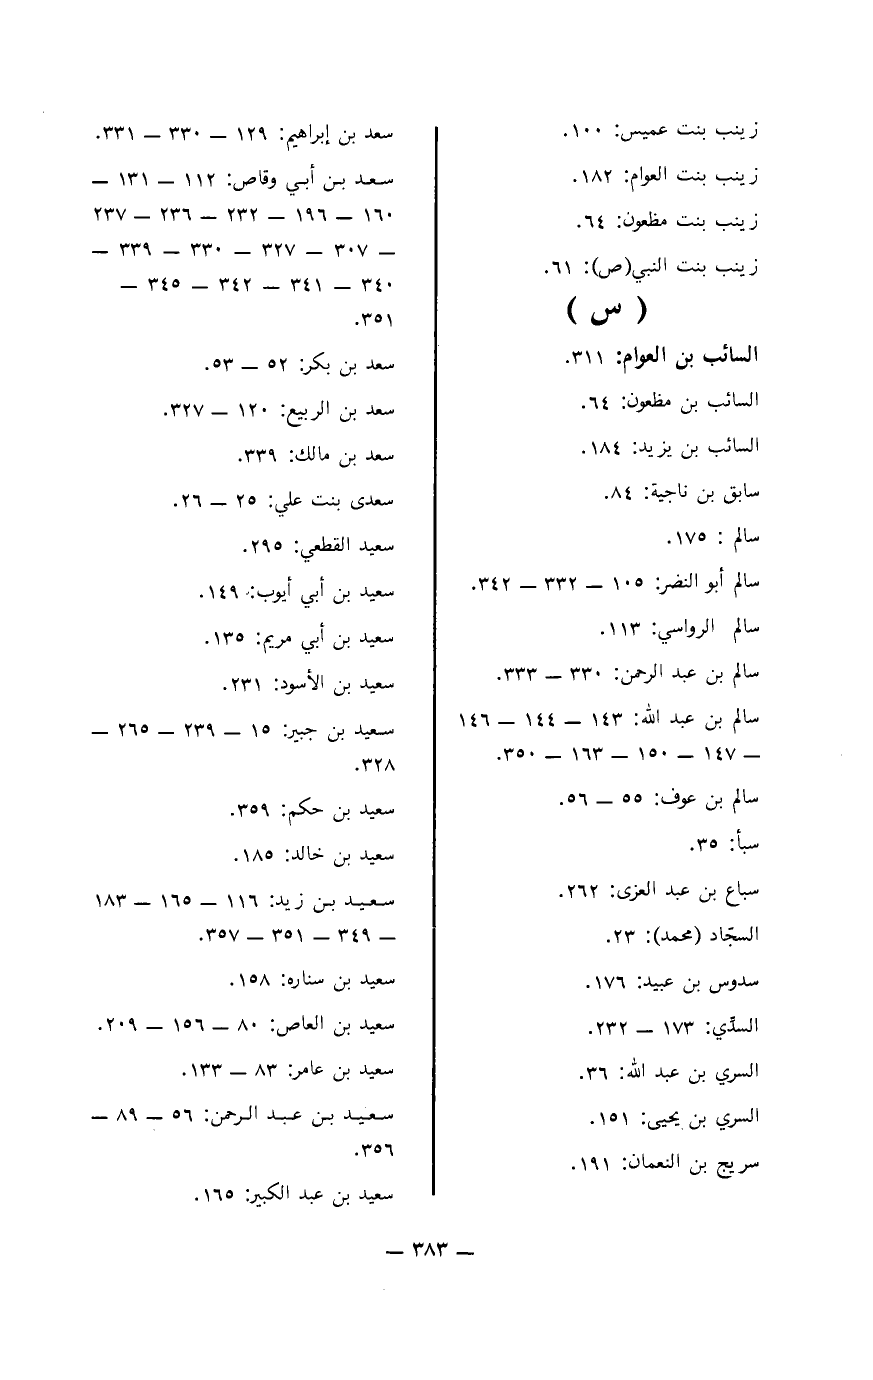 زينب بنت عميس: ١٠٠.
زينب بنت العوام: ١٨٢.
زينب بنت مظعون: ٦٤.
زينب بنت النبي(ص): ٦١.
( س )
السائب بن العوام: ٣١١.
السائب بن مظعون: ٦٤.
السائب بن يزيد: ١٨٤.
سابق بن ناجية: ٨٤.
سالم : ١٧٥.
سالم أبو النضر: ١٠٥ — ٣٣٢ — ٣٤٢.
سالم الرواسي: ١١٣.
سالم بن عبد الرحمن: ٣٣٠ — ٣٣٣.
سالم بن عبد الله: ١٤٣ — ١٤٤ — ١٤٦
— ١٤٧ — ١٥٠ — ١٦٣ — ٣٥٠.
سالم بن عوف: ٥٥ — ٥٦.
سبأ: ٣٥.
سباع بن عبد العزى: ٢٦٢.
السجّاد (محمد): ٢٣.
سدوس بن عبيد: ١٧٦.
السدِّي: ١٧٣ — ٢٣٢.
السري بن عبد الله: ٣٦.
السري بن يحيى: ١٥١.
سريج بن النعمان: ١٩١.
سعد بن إبراهيم: ١٢٩ — ٣٣٠ — ٣٣١.
سعد بن أبي وقاص: ١١٢ — ١٣١ —
١٦٠ — ١٩٦ — ٢٣٢ — ٢٣٦ — ٢٣٧
— ٣٠٧ — ٣٢٧ — ٣٣٠ — ٣٣٩ —
٣٤٠ — ٣٤١ — ٣٤٢ — ٣٤٥ —
٣٥١.
سعد بن بكر: ٥٢ — ٥٣.
سعد بن الربيع: ١٢٠ — ٣٢٧.
سعد بن مالك: ٣٣٩.
سعدى بنت علي: ٢٥ — ٢٦.
سعيد القطعي: ٢٩٥.
سعيد بن أبي أيوب: ١٤٩.
سعيد بن أبي مريم: ١٣٥.
سعيد بن الأسود: ٢٣١.
سعيد بن جبير: ١٥ — ٢٣٩ — ٢٦٥ —
٣٢٨.
سعيد بن حكم: ٣٥٩.
سعيد بن خالد: ١٨٥.
سعيد بن زيد: ١١٦ — ١٦٥ — ١٨٣
— ٣٤٩ — ٣٥١ — ٣٥٧.
سعيد بن سناره: ١٥٨.
سعيد بن العاص: ٨٠ — ١٥٦ — ٢٠٩.
سعيد بن عامر: ٨٣ — ١٣٣.
سعيد بن عبد الرحمن: ٥٦ — ٨٩ —
٣٥٦.
سعيد بن عبد الكبير: ١٦٥.
— ٣٨٣ —